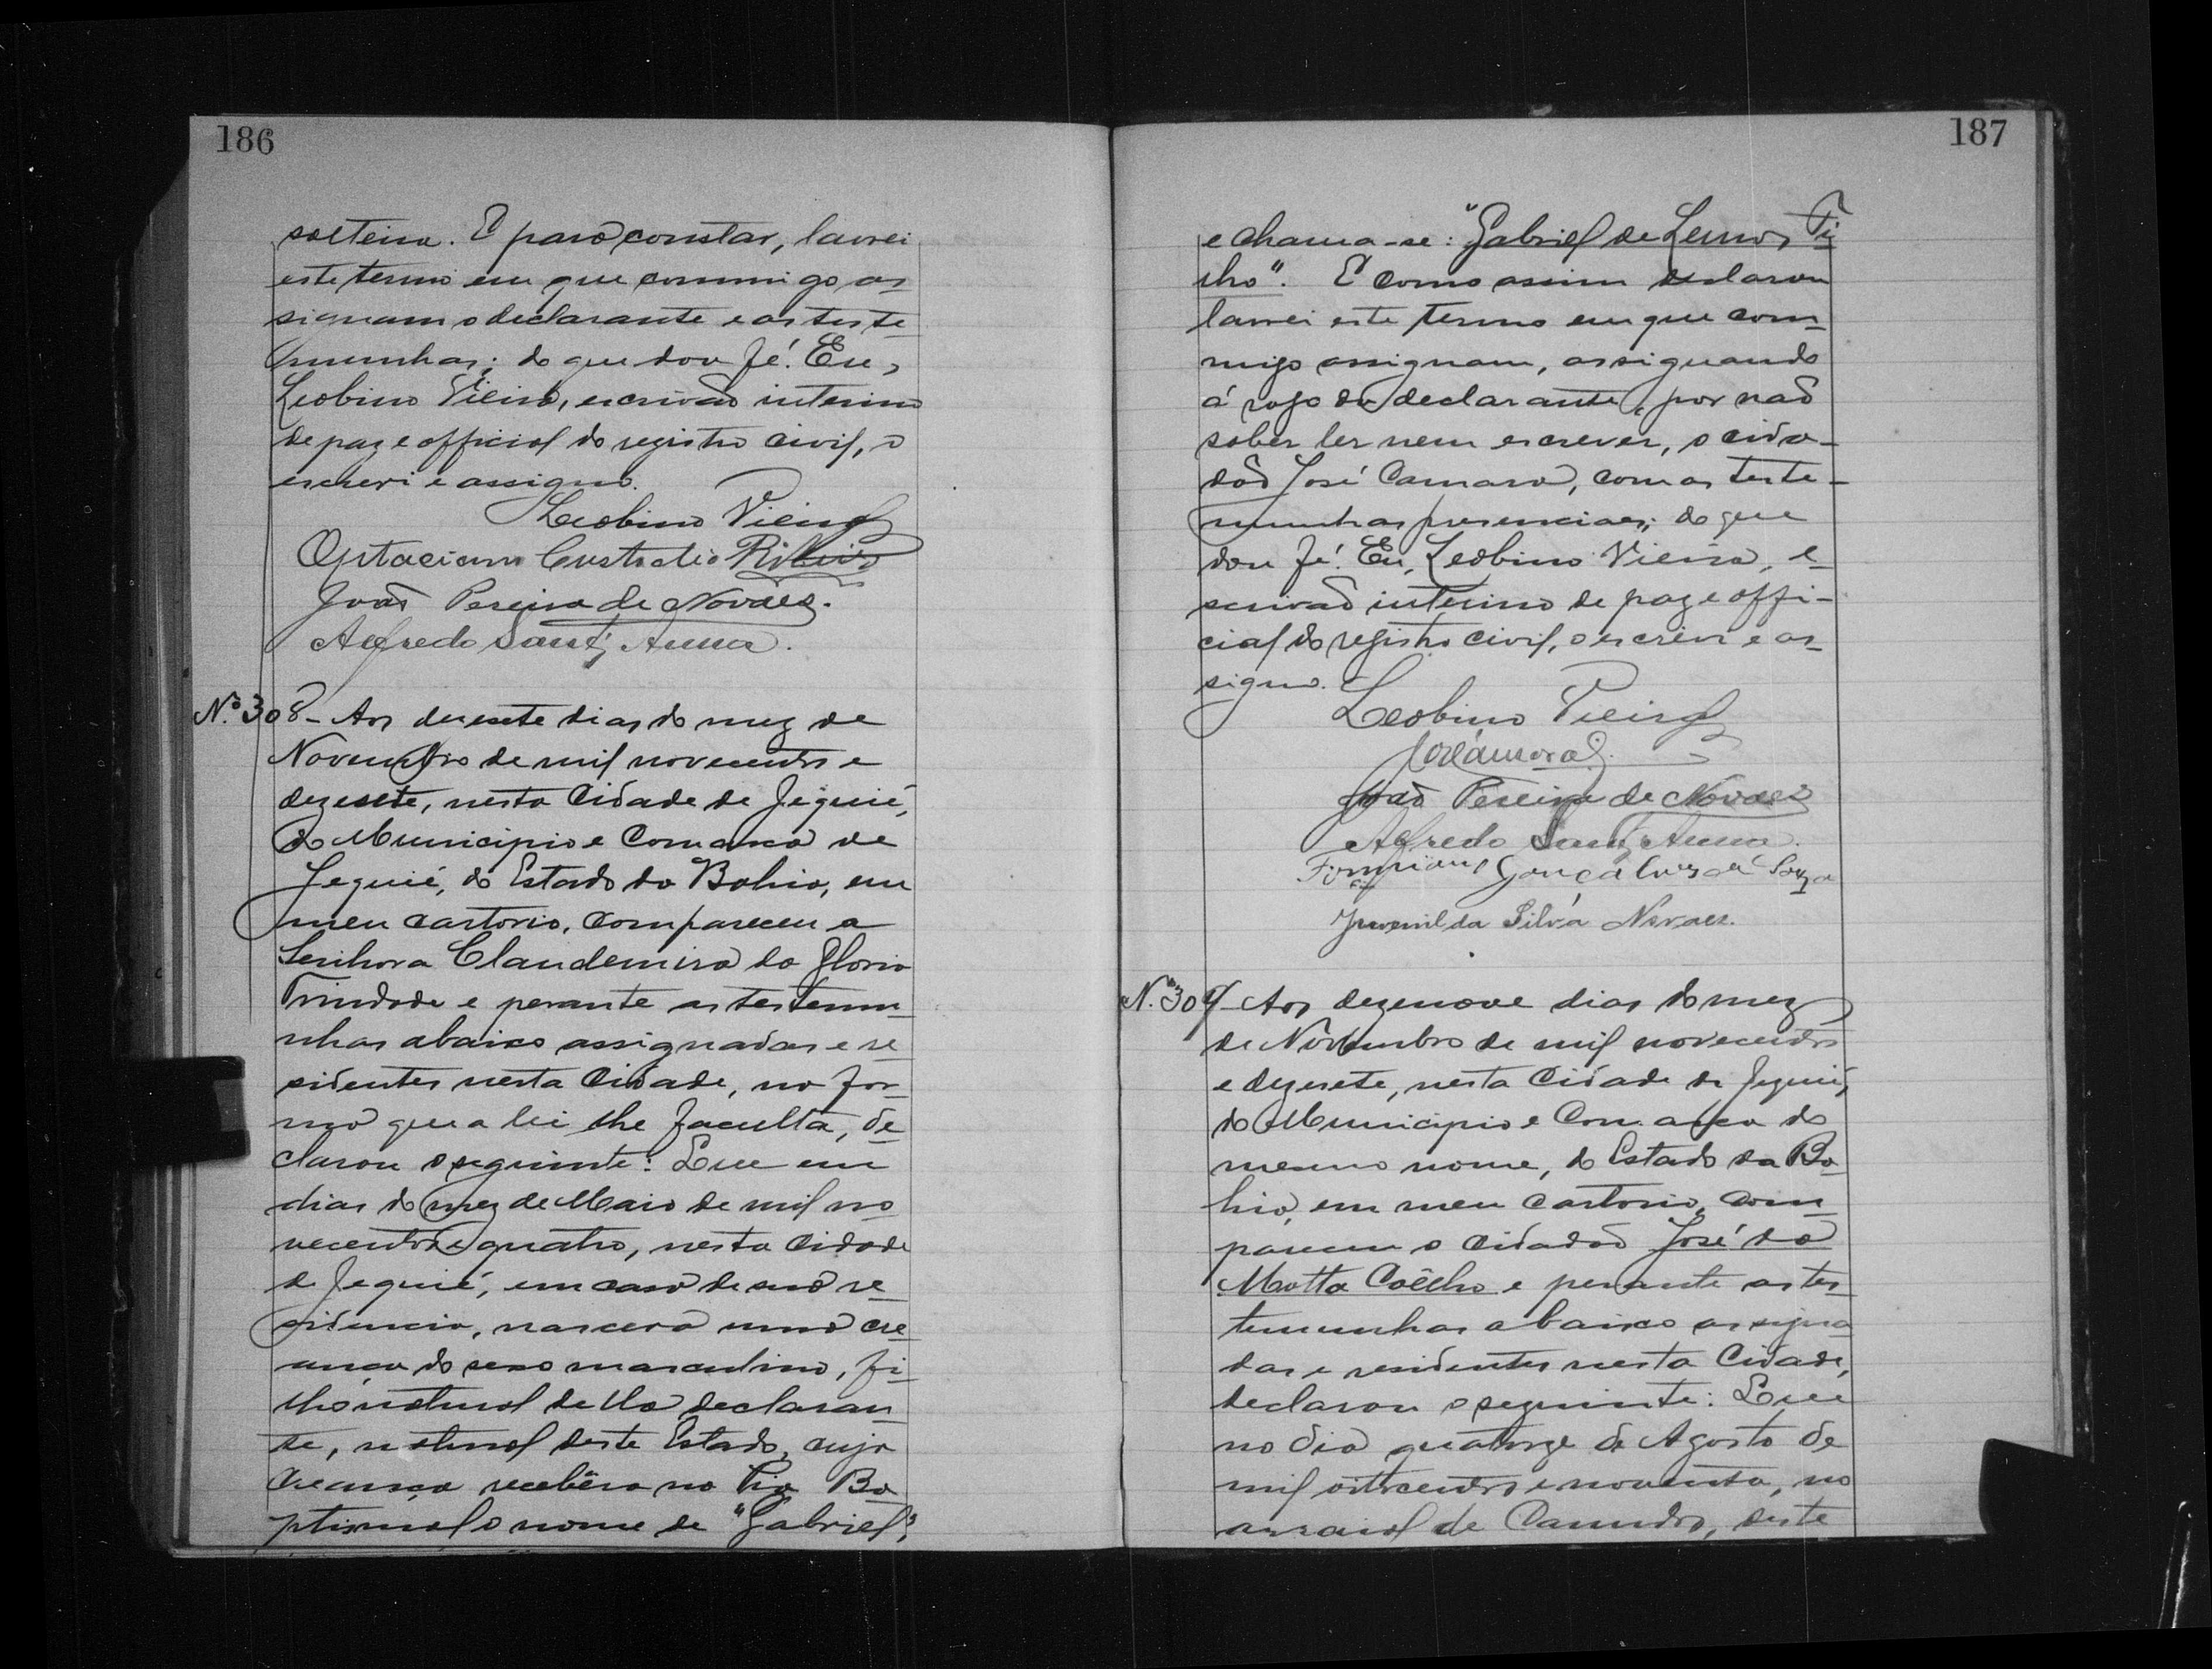 186
solteira. E para constar, lavrei
este termo em que commigo as
signam o declarante e as teste
munhas; do que dou fé. Eu,
Leobino Vieira, escrivão interino
de paz e official do registro civil, o
escrevi e assigno.
Leobino Vieira
Optaciano Custodio Ribeiro
João Pereira de Novaes.
Alfredo Sant'Anna.
Nº 308 - Aos desesete dias do mez de
Novembro de mil novecentos e
dezesete, nesta Cidade de Jequié,
do Municipio e Comarca de
Jequié, do Estado da Bahia, em
meu cartorio, compareceu a
Senhora Claudemira da Gloria
Trindade e perante as testemu
nhas abaixo assignadas e re
sidentes nesta Cidade, na for
ma que a lei lhe faculta, de
clarou o seguinte: Que em
dias do mez de Maio de mil no
vecentos e quatro, nesta Cidade
de Jequié, em casa de sua re
sidencia, nascera uma cre
ança do sexo masculino, fi
lho natural della declaran
te, natural deste Estado, cuja
creança recebêra na Pia Ba
ptismal o nome de "Gabriel",
187
e chama-se: "Gabriel de Lemos Fi
lho". E como assim declarou
lavrei este termo em que com
migo assignam, assignando
á rogo da declarante, por não
saber ler nem escrever, o cida-
dão José Camara, com as teste-
munhas presenciaes; do que
dou fé. Eu, Leobino Vieira, e
scrivão interino de paz e offi-
cial do registro civil, o escrevi e as
signo.
Leobino Vieira
João Pereira de Novaes
Alfredo Sant'Anna.
Firmiano Gonçalves de Souza
Juvenil da Silva Novaes.
N. 309 - Aos dezenove dias do mez
de Novembro de mil novecentos
e dezesete, nesta Cidade de Jequié,
do Municipio e Comarca do
mesmo nome, do Estado da Ba
hia, em meu cartorio, com
pareceu o cidadão José da
Motta Coêlho e perante as tes
temunhas abaixo assigna
das e residentes nesta Cidade,
declarou o seguinte: Que
no dia quatorze de Agosto de
mil oitocentos e noventa, no
arraial de Canudos, deste